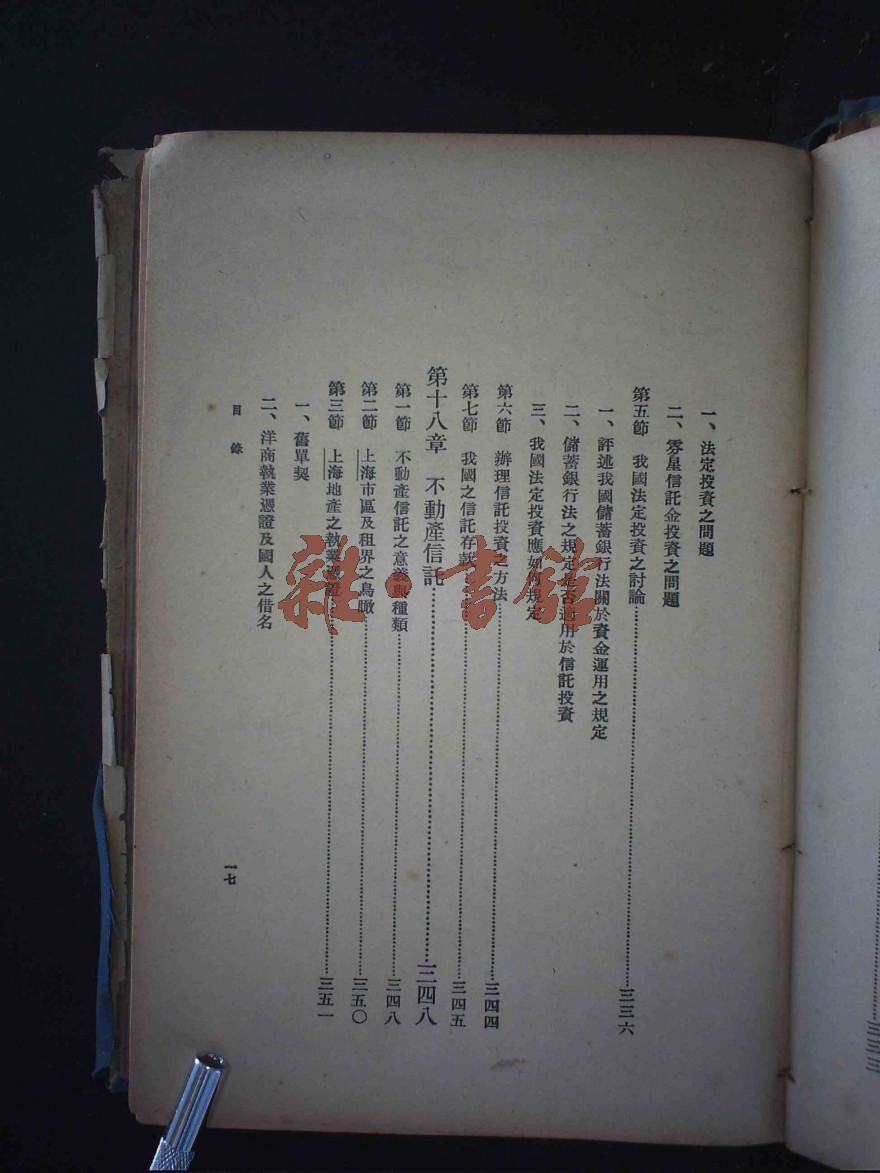 一、法定投資之問題
二、零星信託金投資之問題
第五節 我國法定投資之討論……三三六
一、評述我國儲蓄銀行法關於資金運用之規定
二、儲蓄銀行法之規定是否適用於信託投資
三、我國法定投資應如何規定
第六節 辦理信託投資之方法……三四四
第七節 我國之信託存款……三四五
第十八章 不動產信託……三四八
第一節 不動產信託之意義與種類……三四八
第二節 上海市區及租界之鳥瞰……三五〇
第三節 上海地產之執業憑證……三五一
一、舊單契
二、洋商執業憑證及國人之借名
目錄
一七
雜·書館